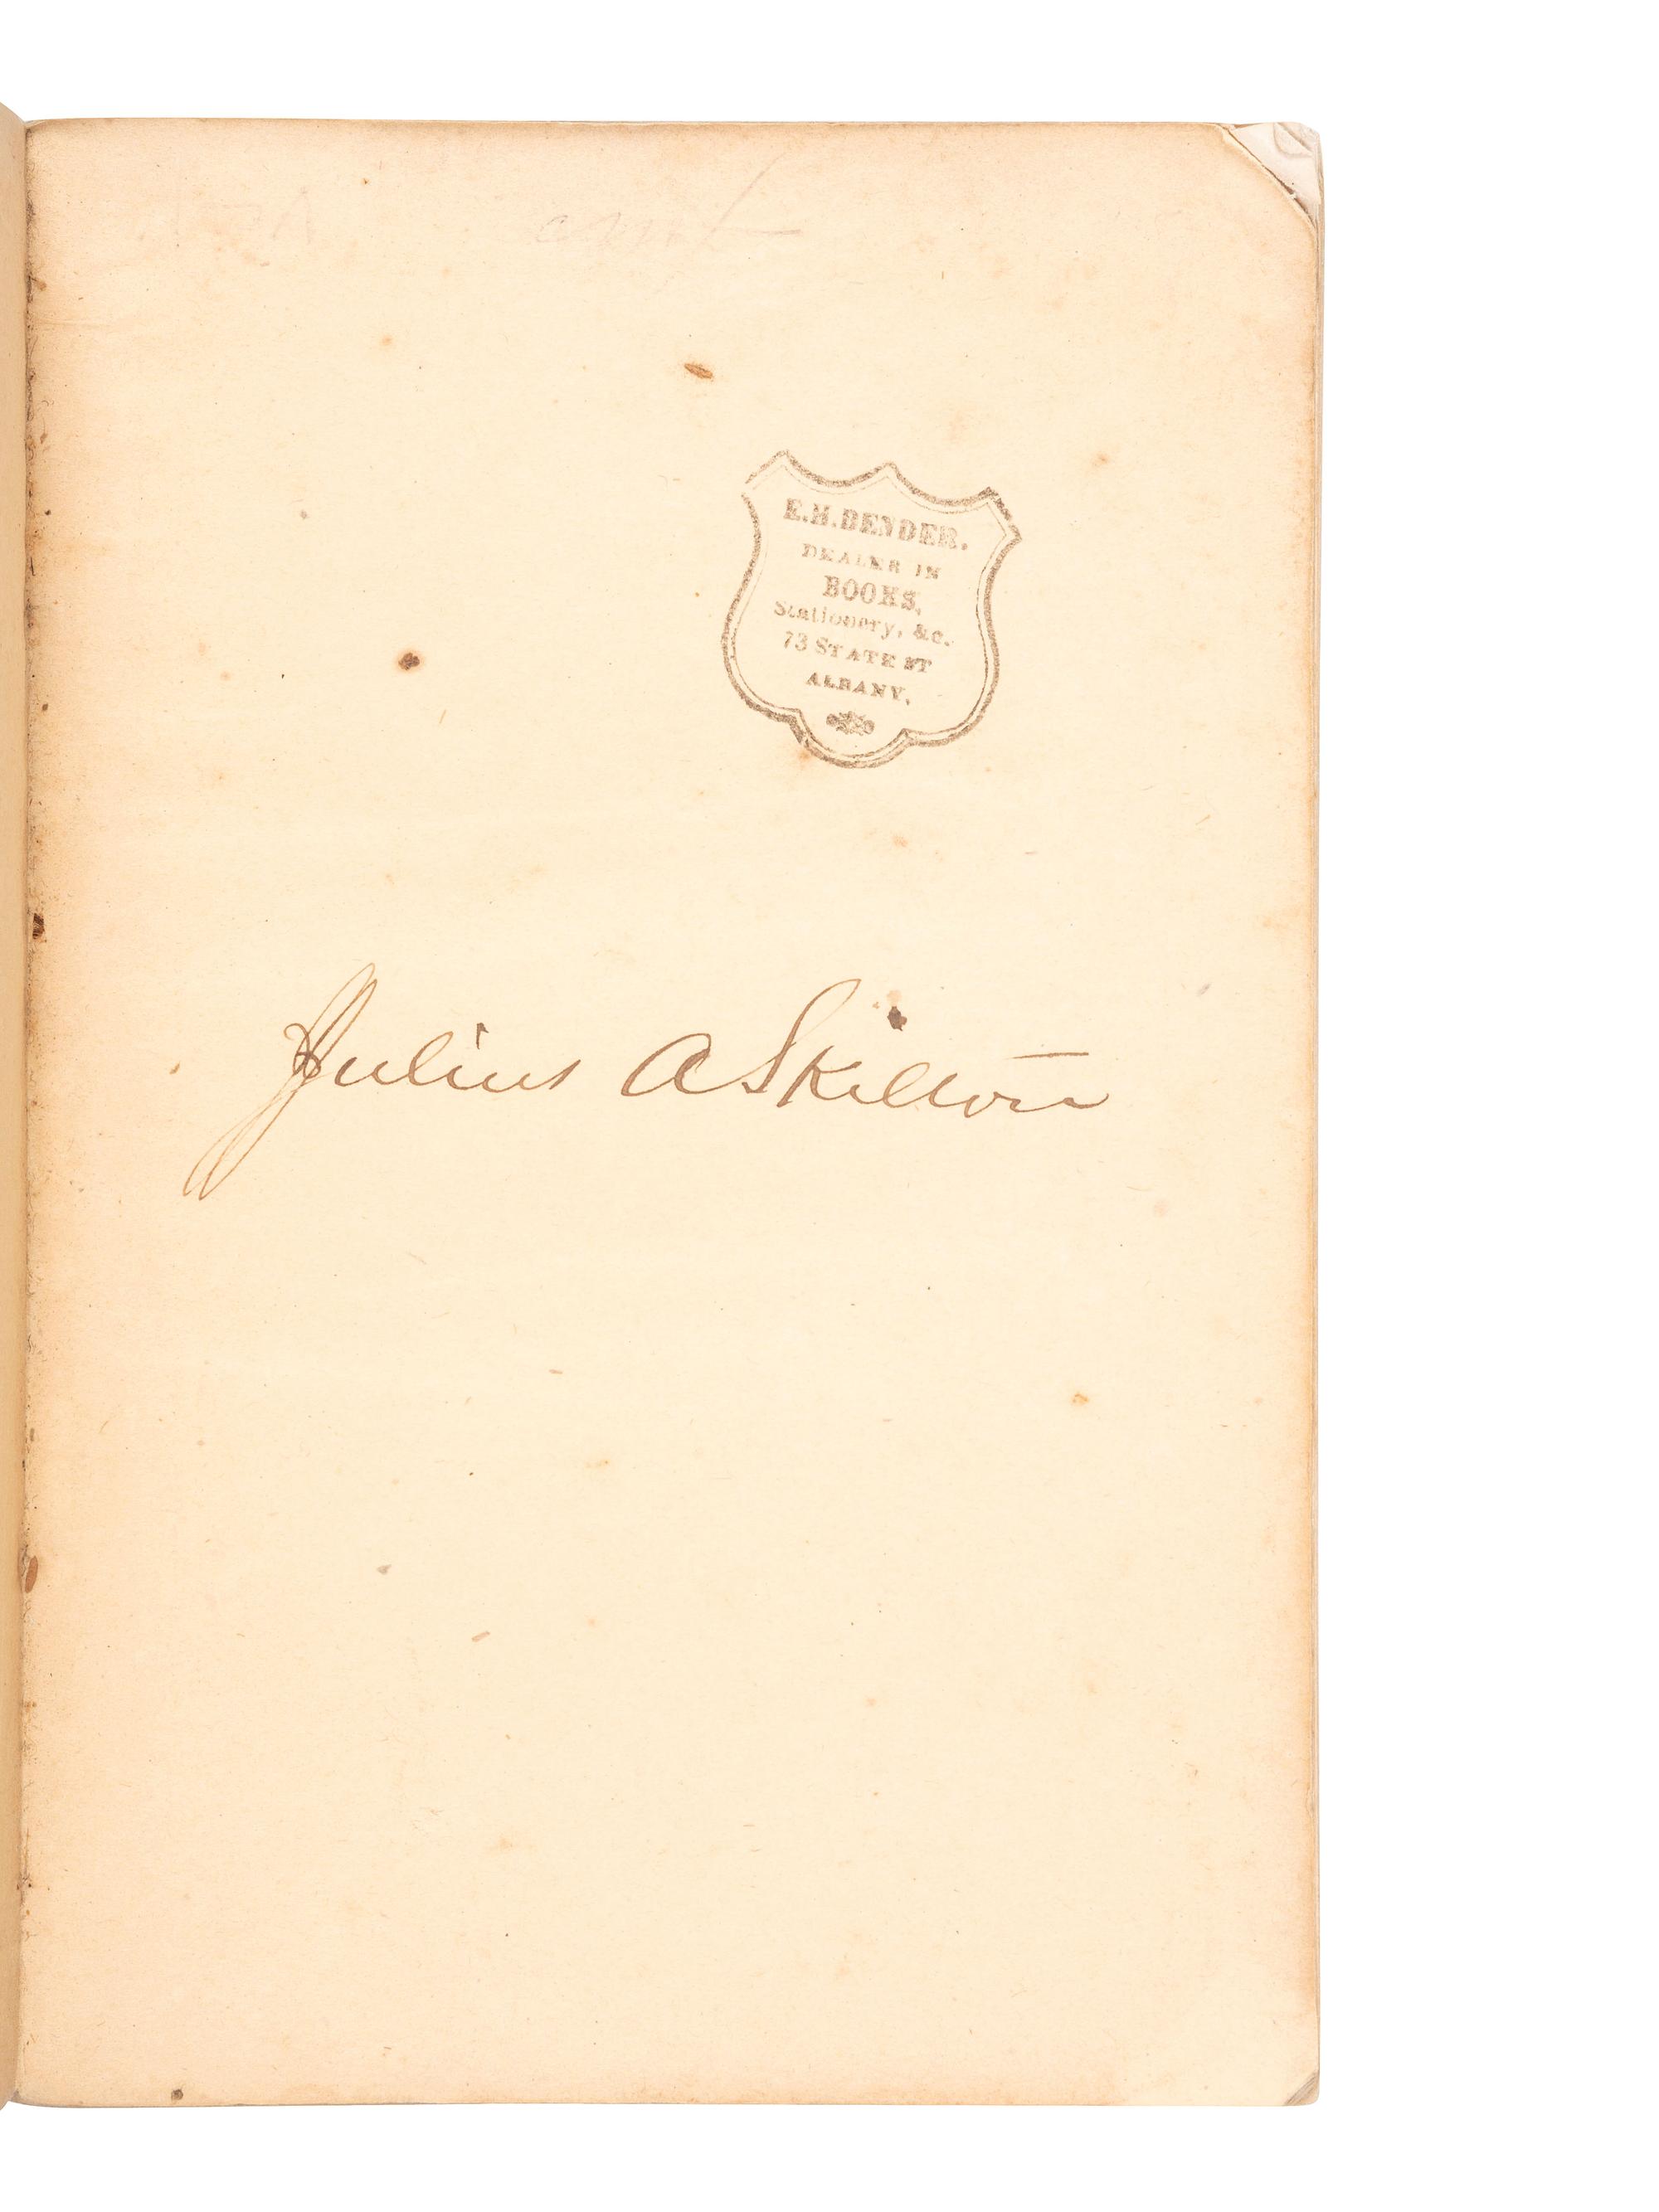 E.H. BENDER.
DEALER IN
BOOKS,
Stationery, &c.
73 STATE ST
ALBANY.
Julius A Skilton